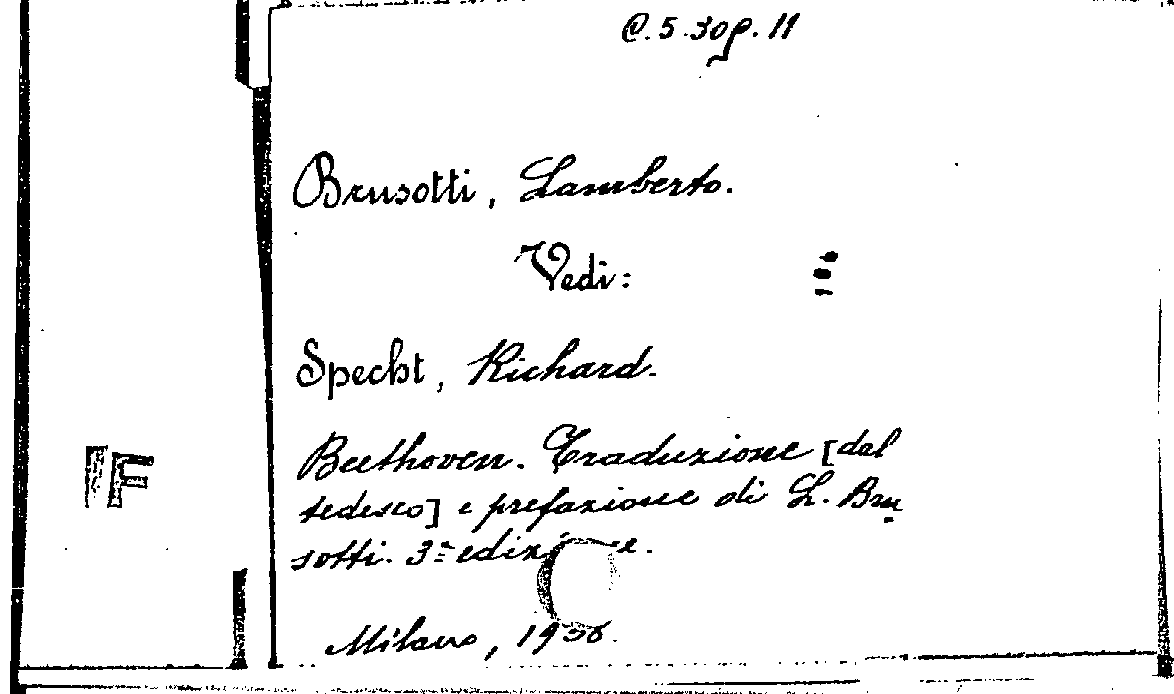 C. 5. 309. 11
Brusotti, Lamberto.
Vedi:
Specht, Richard.
Beethoven. Traduzione [dal
tedesco] e prefazione di L. Bru
sotti. 3ª edizione.
IF
Milano, 1936.